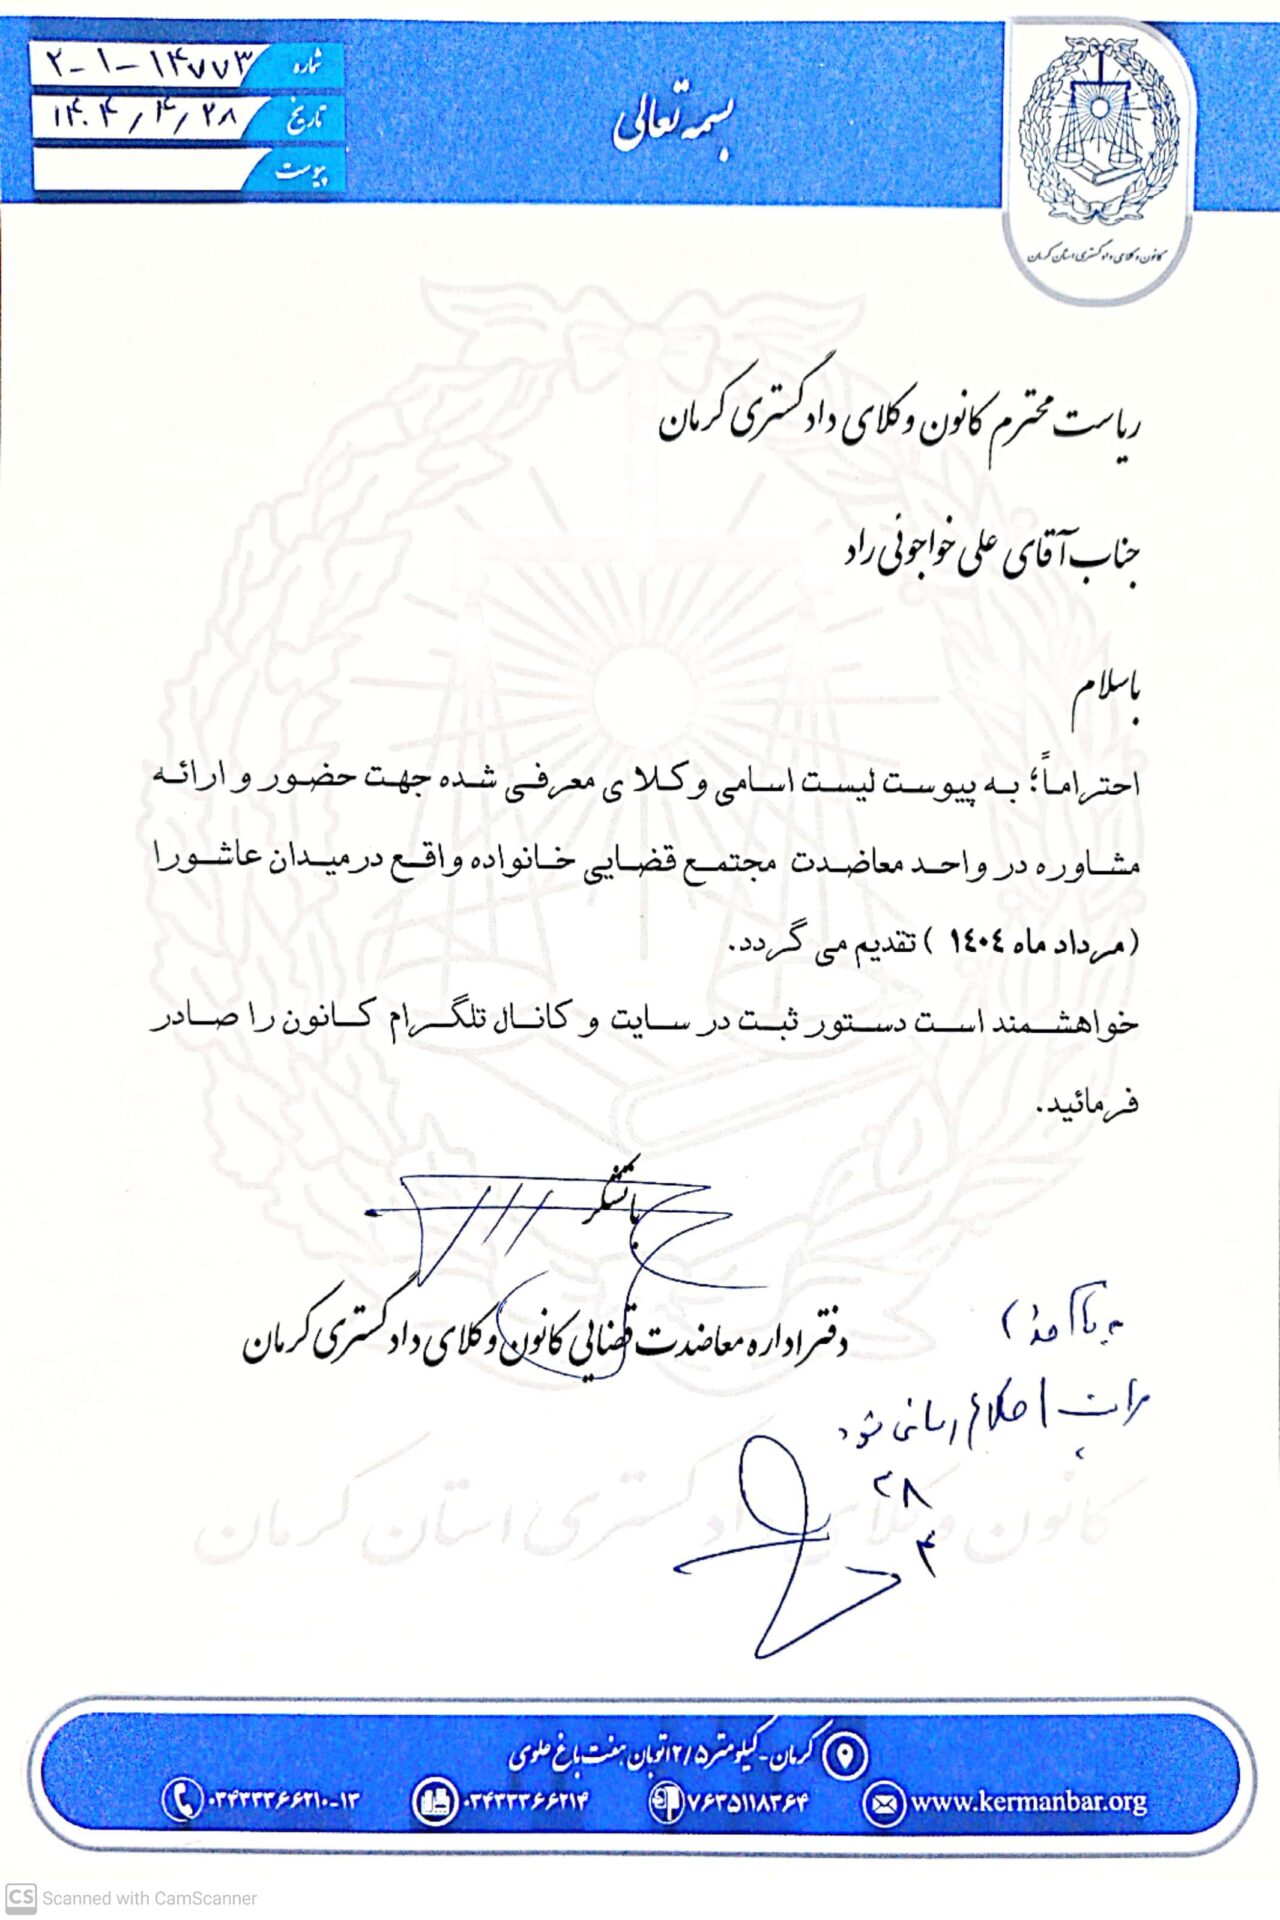 بسمه تعالی
شماره ۲-۱-۱۴۷۷۳
تاریخ ۱۴۰۴/۴/۲۸
پیوست
کانون وکلای دادگستری استان کرمان
ریاست محترم کانون وکلای دادگستری کرمان
جناب آقای علی خواجوئی راد
باسلام
احتراماً؛ به پیوست لیست اسامی وکلا ی معرفی شده جهت حضور و ارائه
مشاوره در واحد معاضدت مجتمع قضایی خانواده واقع درمیدان عاشورا
(مرداد ماه ۱٤۰٤ ) تقدیم می گردد.
خواهشمند است دستور ثبت در سایت و کانال تلگرام کانون را صادر
فرمائید.
باتشکر
دفتر اداره معاضدت قضایی کانون وکلای دادگستری کرمان
مراتب اطلاع رسانی شود
۲۸
۴
کانون وکلای دادگستری استان کرمان
کرمان-کیلومتر ۱۲/۵ اتوبان هفت باغ علوی
www.kermanbar.org
۷۶۳۵۱۱۸۳۶۴
۰۳۴۳۳۳۶۶۲۱۴
۰۳۴۳۳۳۶۶۲۱۰-۱۳
CS Scanned with CamScanner